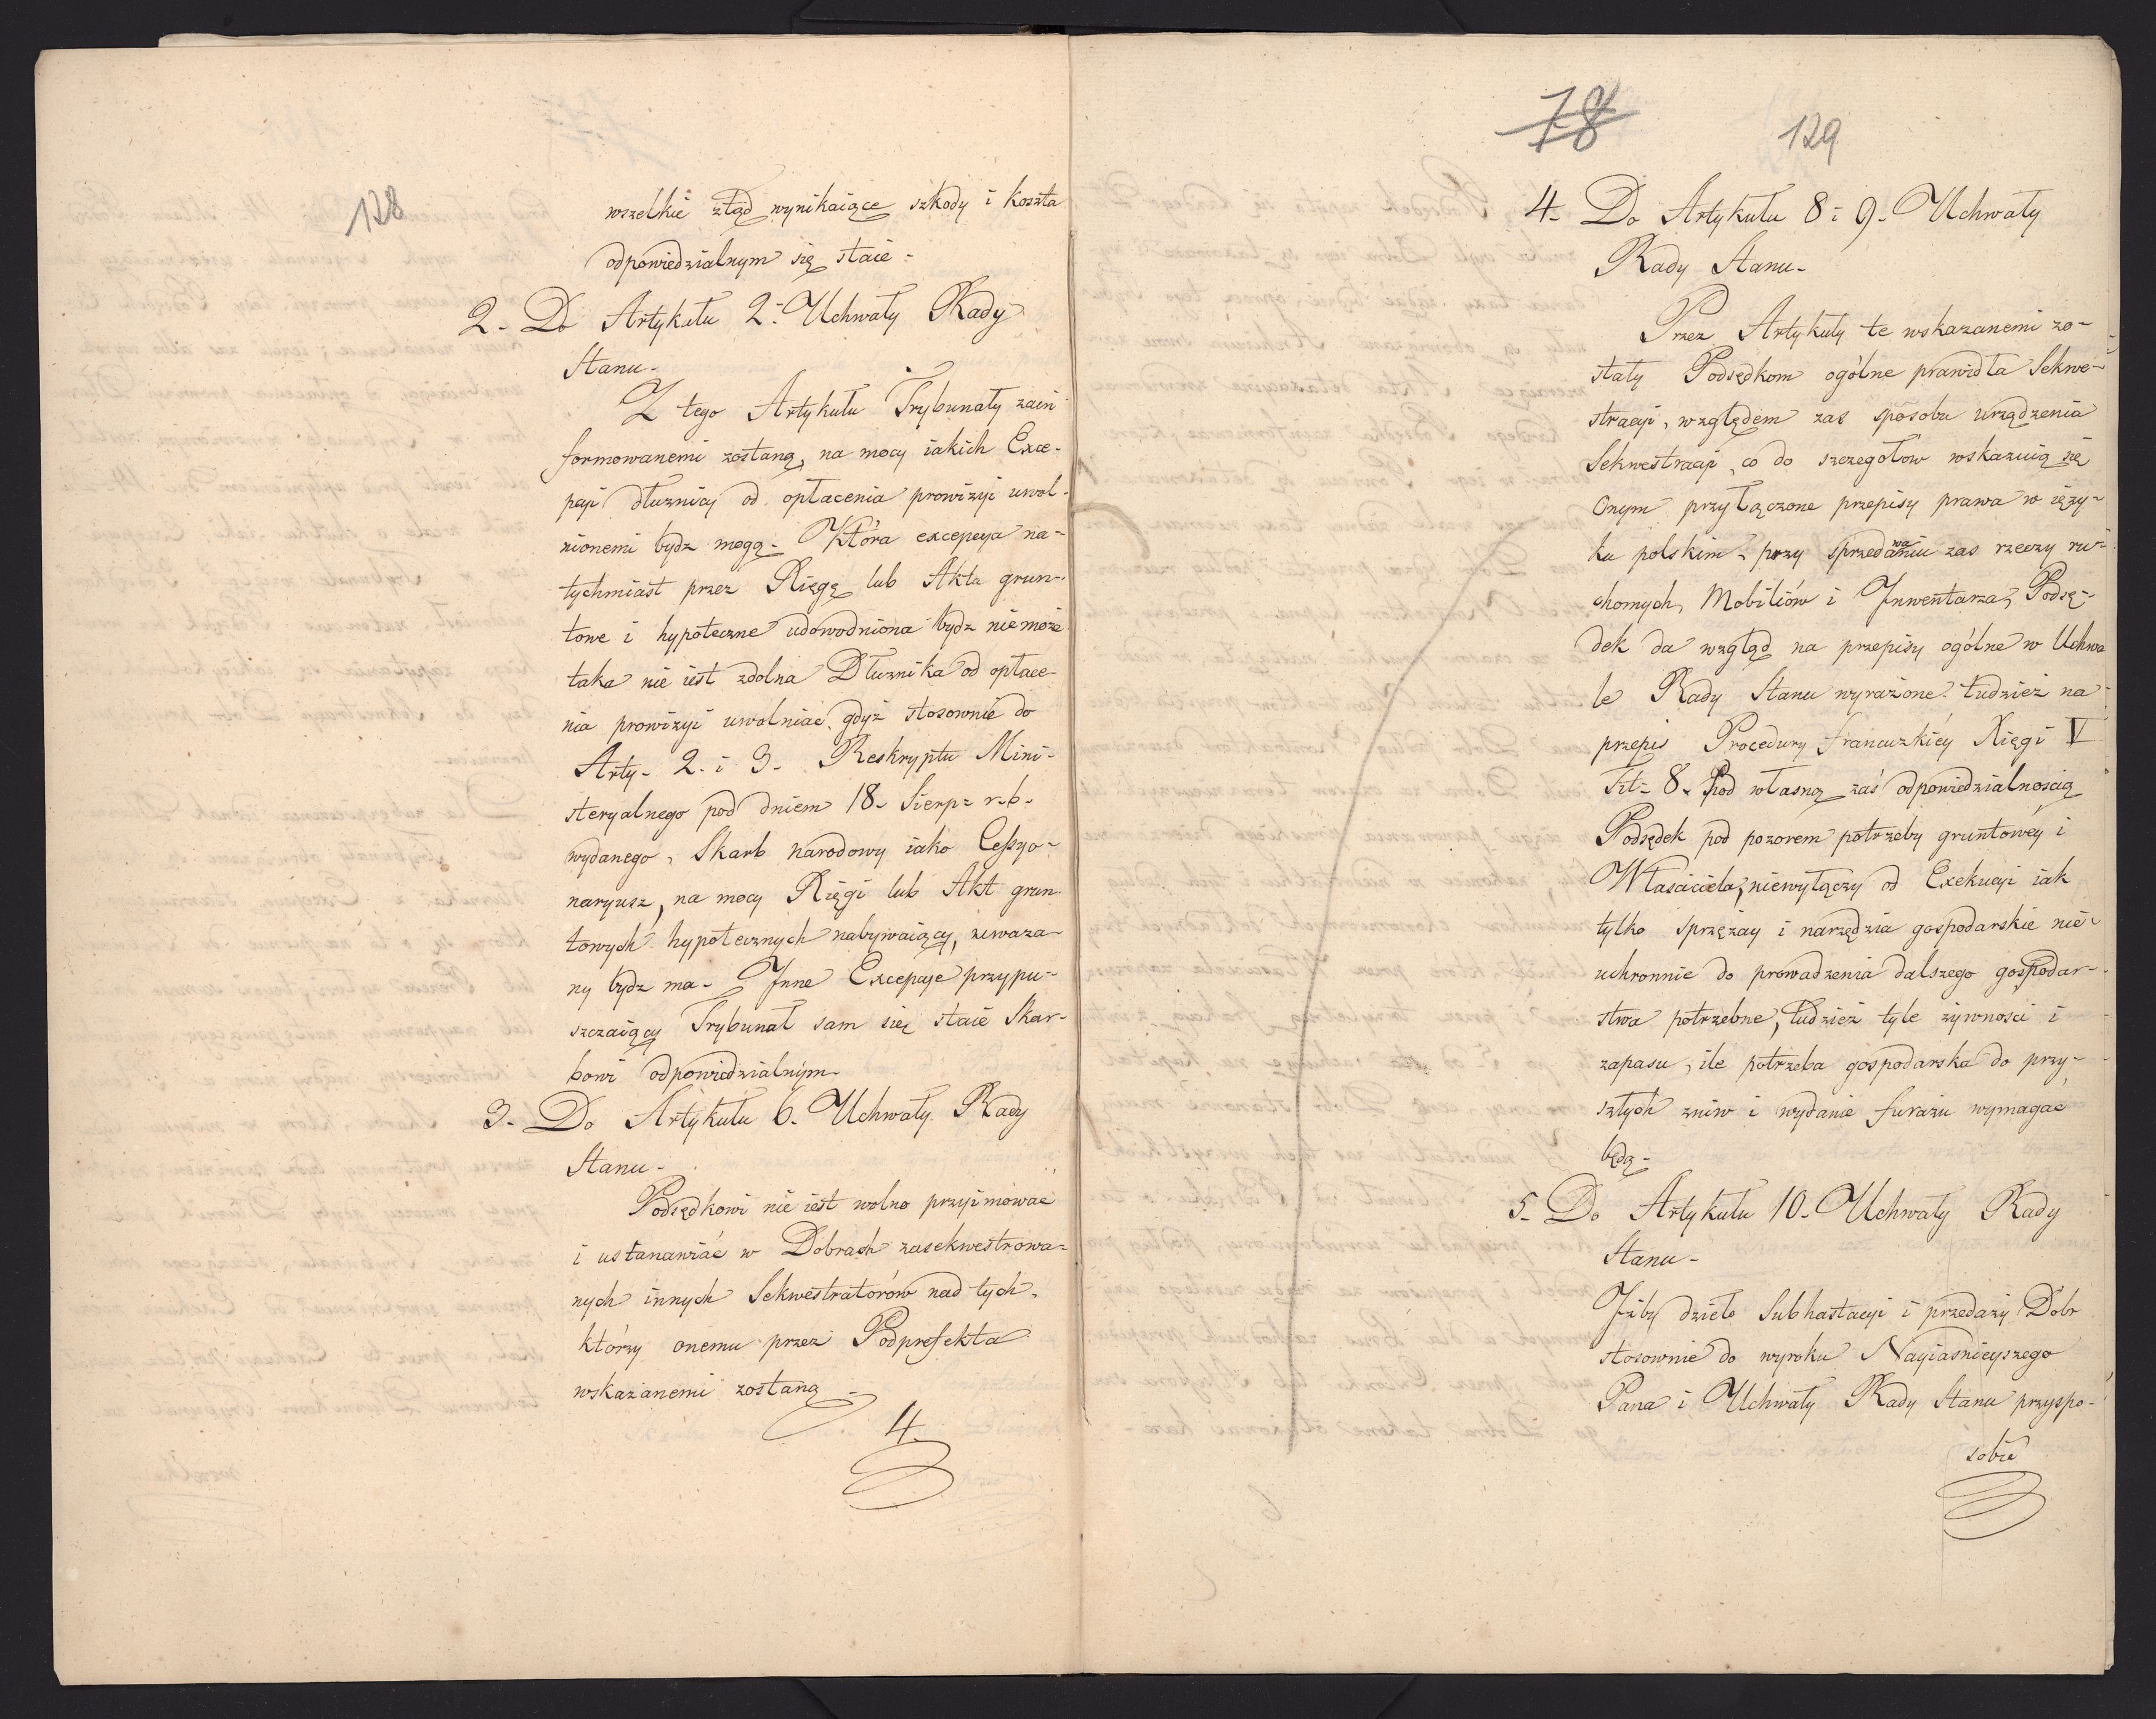 128
wszelkie ztąd wynikaiące szkody i koszta
odpowiedzialnym się staie -
2. Do Artykułu 2. Uchwały Rady
Stanu -
Z tego Artykułu Trybunały zain
formowanemi zostaną, na mocy iakich Exce-
pcji dłużnicy od opłacenia prowizyi uwol-
nionemi bydz mogą - Która excepcya na-
tychmiast przez Xięgę lub Akta grun-
towe i hypoteczne udowodniona bydz niemoże
taka nie iest zdolna Dłużnika od opłace-
nia prowizyi uwolniać, gdyż stosownie do
Arty. 2. i 3. Reskryptu Mini-
steryalnego pod dniem 18. Sierp= r. b.
wydanego, Skarb narodowy iako Cessyo-
naryusz, na mocy Xięgi lub Akt grun
towych hypotecznych nabywaiący, uważa-
ny bydz ma - Inne Excepcye przypu-
szczaiący Trybunał sam się staie Skar-
bowi odpowiedzialnym -
3. Do Artykułu 6. Uchwały Rady
Stanu -
Podsędkowi nie iest wolno przyimować
i ustanawiać w Dobrach zasekwestrowa-
nych innych Sekwestratorów nad tych,
którzy onemu przez Podprefekta
wskazanemi zostaną -
4.
78
129
4. Do Artykułu 8 i 9. Uchwały
Rady Stanu -
Przez Artykuły te wskazanemi zo-
stały Podsędkom ogólne prawidła Sekwe-
stracji, względem zas sposobu urządzenia
Sekwestracji, co do szczegołow wskazuią się
onym przyłączone przepisy prawa w ięzy-
ku polskim, przy sprzedawaniu zas rzeczy ru-
chomych, Mobiliów i Inwentarza, Podsę-
dek da wzgląd na przepisy ogólne w Uchwa
le Rady Stanu wyrażone tudzież na
przepis Procedury francuzkiey Xięgi V
Tit= 8. Pod własną zaś odpowiedzialnością
Podsędek pod pozorem potrzeby gruntowéy i
Właściciela, niewyłączy od Exekucyi iak
tylko sprzężay i narzędzia gospodarskie nie-
uchronnie do prowadzenia dalszego gospodar-
stwa potrzebne, tudzież tyle żywności i
zapasu, ile potrzeba gospodarska do przy-
szłych zniw i wydanie furażu wymagać
będą -
5. Do Artykułu 10. Uchwały Rady
Stanu -
Iżby dzieło Subhastacyi i przedaży Dobr
stosownie do wyroku Nayiasnieyszego
Pana i Uchwały Rady Stanu przyspo-
sobie